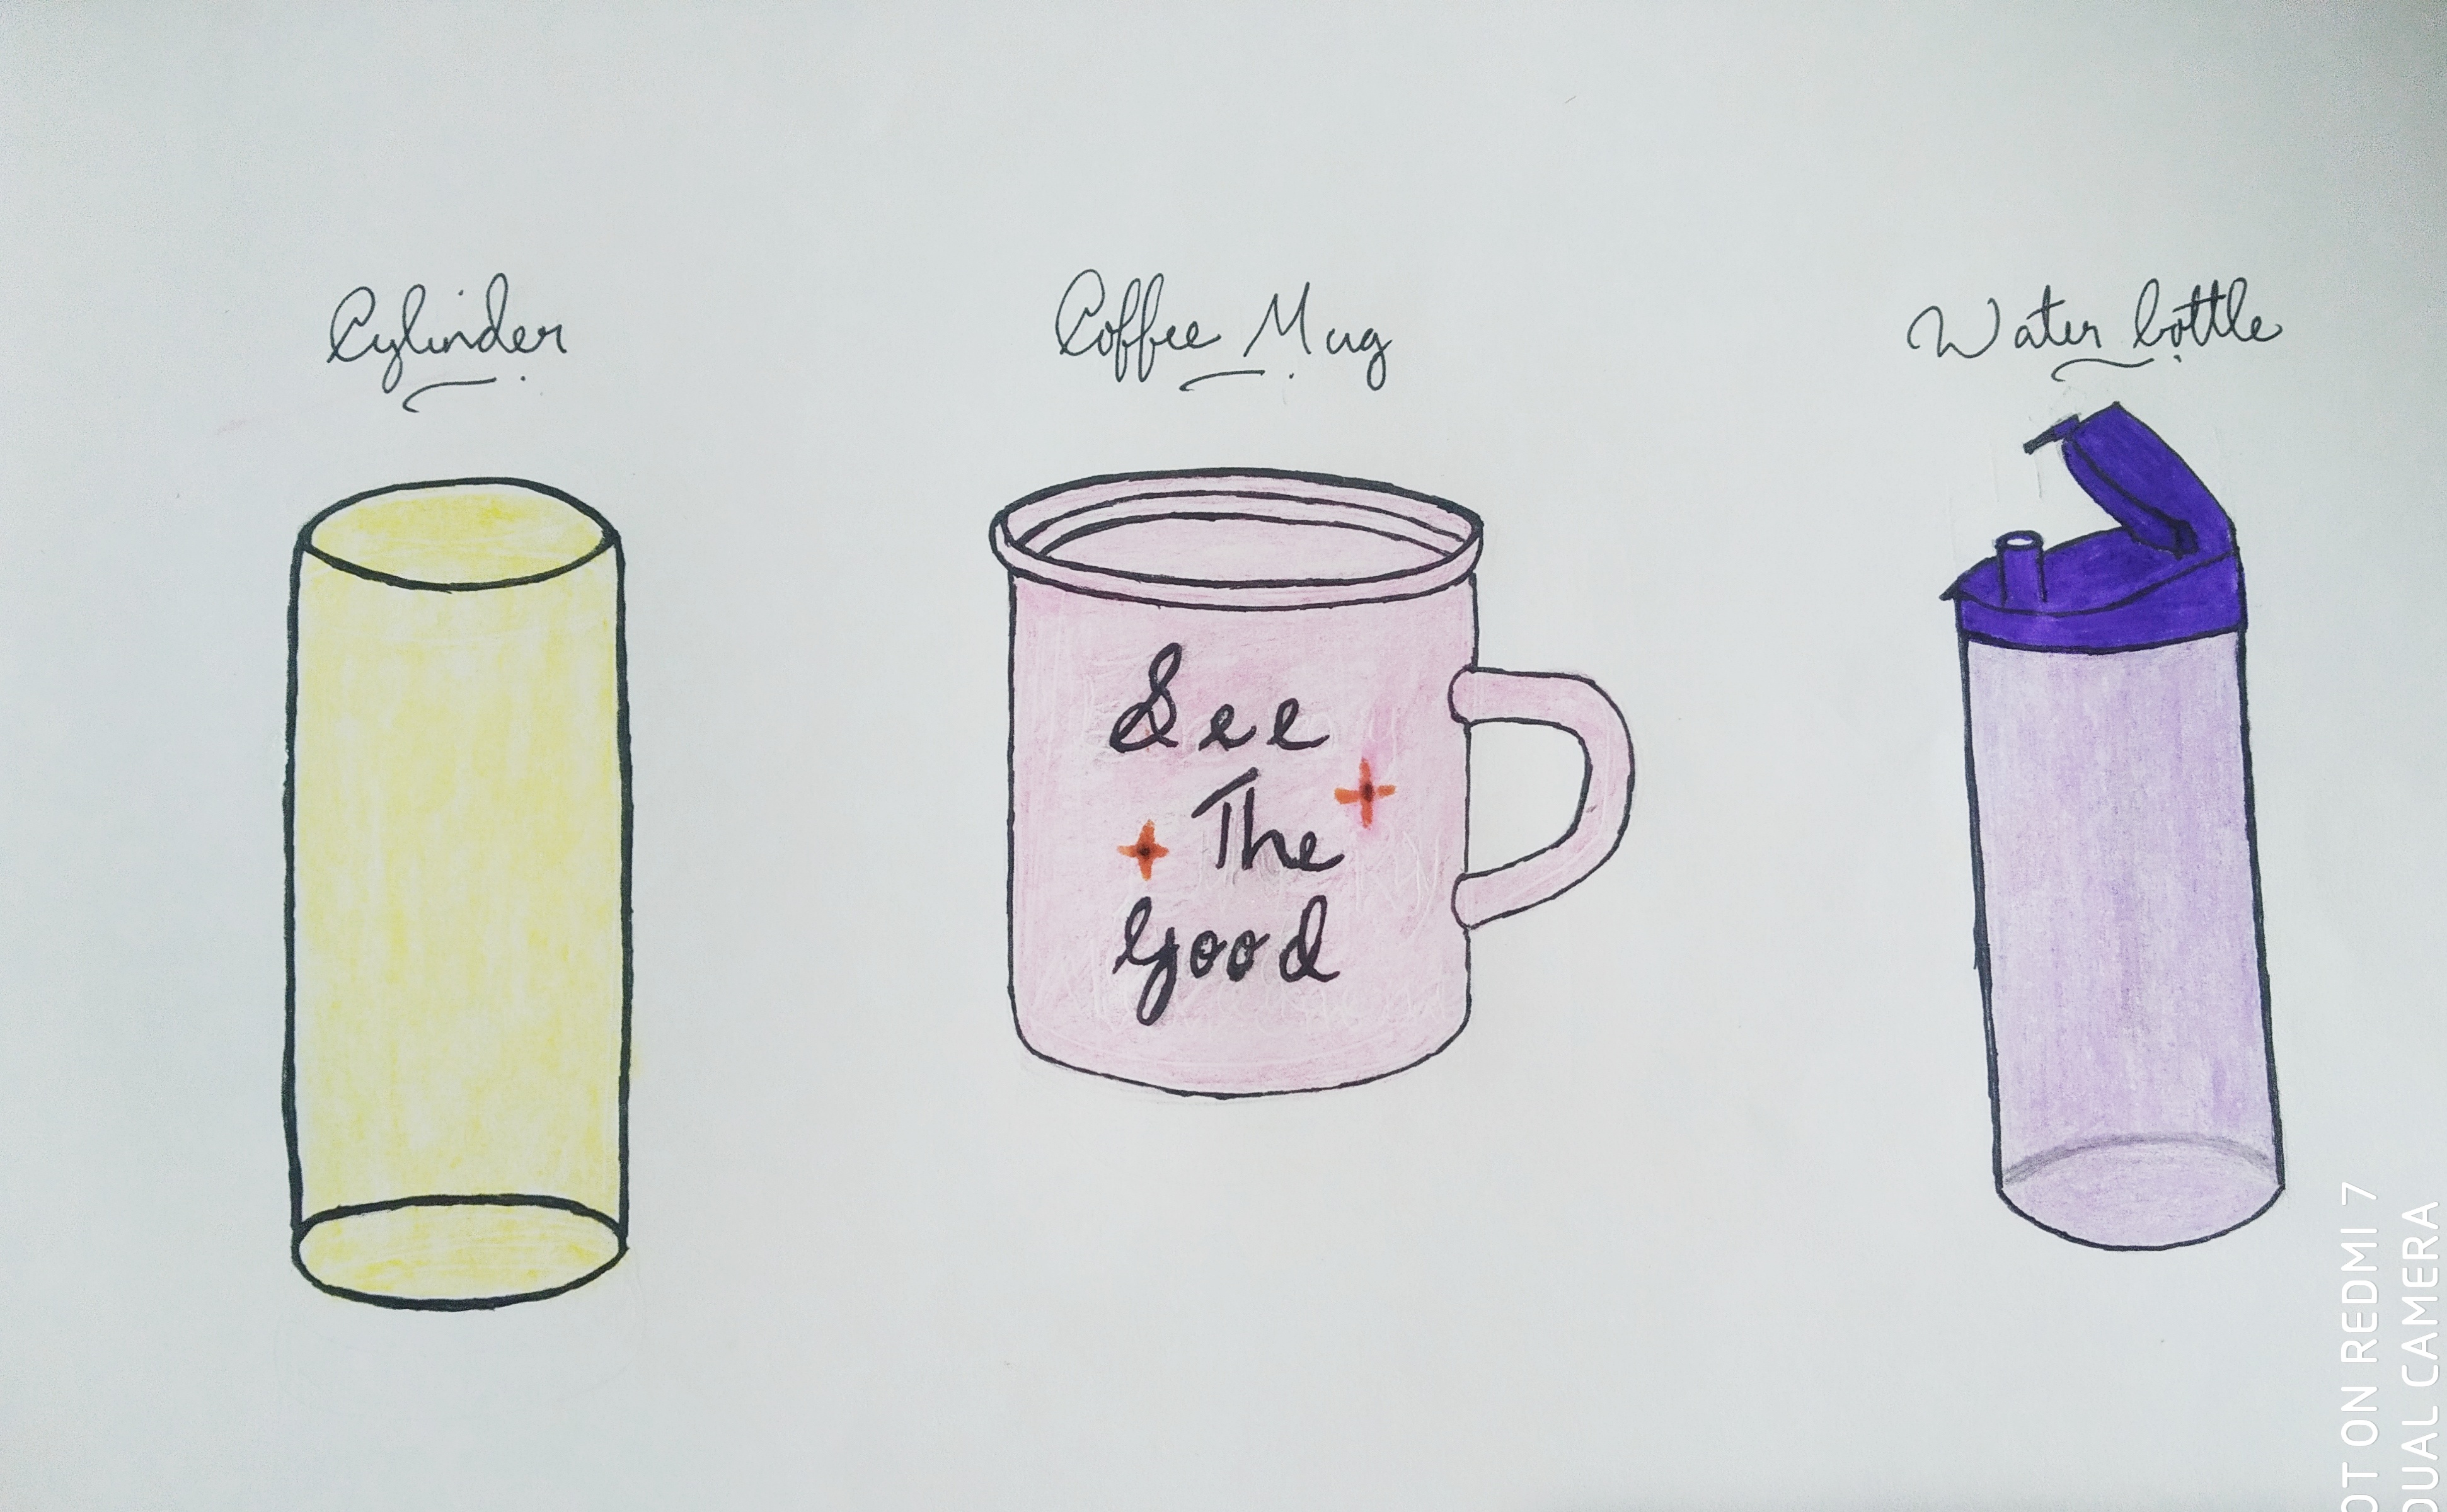 Cylinder
Coffee Mug
Water bottle
See
The
Good
OT ON REDMI 7
DUAL CAMERA